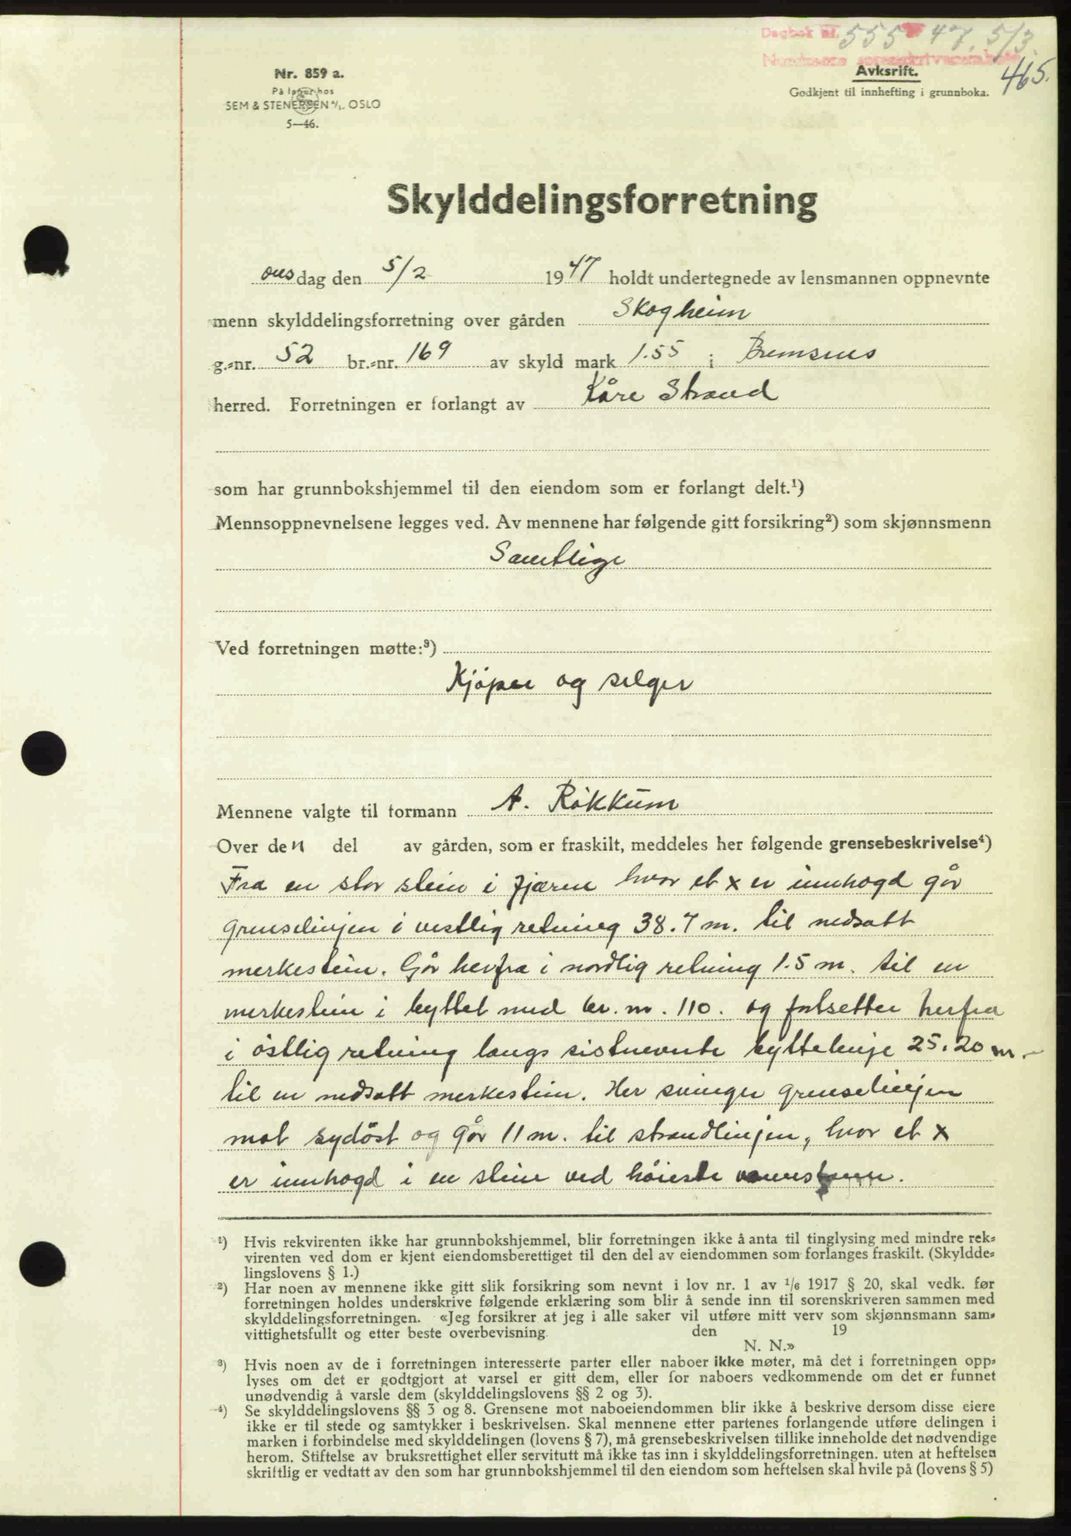 Dagbok nr. 555 47. 5/3.
Nordmøre sorenskriverembede
465.
Nr. 859 a.
På lager hos
SEM & STENERSEN A/S. OSLO
5—46.
Avksrift.
Godkjent til innhefting i grunnboka.
Skylddelingsforretning
onsdag den 5/2 1947 holdt undertegnede av lensmannen oppnevnte
menn skylddelingsforretning over gården Skogheim
g.-nr. 52 br.-nr. 169 av skyld mark 1.55 i Bremsnes
herred. Forretningen er forlangt av Kåre Strand
som har grunnbokshjemmel til den eiendom som er forlangt delt.¹)
Mennsoppnevnelsene legges ved. Av mennene har følgende gitt forsikring²) som skjønnsmenn
Samtlige
Ved forretningen møtte:³)
Kjøper og selger
Mennene valgte til formann A. Røkkum
Over den del av gården, som er fraskilt, meddeles her følgende grensebeskrivelse⁴)
Fra en stor stein i fjæren hvor et x er innhogd går
grenselinjen i vestlig retning 38.7 m. til nedsatt
merkestein. Går herfra i nordlig retning 1.5 m. til en
merkestein i byttet med br. nr. 110. og fortsetter herfra
i østlig retning langs sistnevnte byttelinje 25.20 m.
til en nedsatt merkestein. Her svinger grenselinjen
mot sydøst og går 11 m. til strandlinjen, hvor et x
er innhogd i en stein ved høieste
¹) Hvis rekvirenten ikke har grunnbokshjemmel, blir forretningen ikke å anta til tinglysing med mindre rek-
virenten ved dom er kjent eiendomsberettiget til den del av eiendommen som forlanges fraskilt. (Skyldde-
lingslovens § 1.)
²) Har noen av mennene ikke gitt slik forsikring som nevnt i lov nr. 1 av ¹/₆ 1917 § 20, skal vedk. før
forretningen holdes underskrive følgende erklæring som blir å sende inn til sorenskriveren sammen med
skylddelingsforretningen. «Jeg forsikrer at jeg i alle saker vil utføre mitt verv som skjønnsmann sam-
vittighetsfullt og etter beste overbevisning den 19
N. N.»
³) Hvis noen av de i forretningen interesserte parter eller naboer ikke møter, må det i forretningen opp-
lyses om det er godtgjort at varsel er gitt dem, eller for naboers vedkommende om det er funnet
unødvendig å varsle dem (skylddelingslovens §§ 2 og 3).
⁴) Se skylddelingslovens §§ 3 og 8. Grensene mot naboeiendommen blir ikke å beskrive dersom disse eiere
ikke er til stede og samtykker i beskrivelsen. Skal mennene etter partenes forlangende utføre delingen i
marken i forbindelse med skylddelingen (lovens § 7), må grensebeskrivelsen tillike inneholde det nødvendige
herom. Stiftelse av bruksrettighet eller servitutt må ikke tas inn i skylddelingsforretningen. uten at heftelsen
skriftlig er vedtatt av den som har grunnbokshjemmel til den eiendom som heftelsen skal hvile på (lovens § 5)